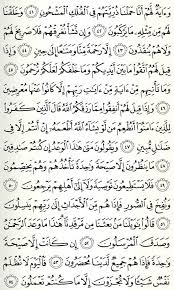 وَءَايَةٌ لَّهُمْ أَنَّا حَمَلْنَا ذُرِّيَّتَهُمْ فِي ٱلْفُلْكِ ٱلْمَشْحُونِ ٤١ وَخَلَقْنَا
لَهُم مِّن مِّثْلِهِۦ مَا يَرْكَبُونَ ٤٢ وَإِن نَّشَأْ نُغْرِقْهُمْ فَلَا صَرِيخَ لَهُمْ
وَلَا هُمْ يُنقَذُونَ ٤٣ إِلَّا رَحْمَةً مِّنَّا وَمَتَٰعًا إِلَىٰ حِينٍ ٤٤ وَإِذَا
قِيلَ لَهُمُ ٱتَّقُوا۟ مَا بَيْنَ أَيْدِيكُمْ وَمَا خَلْفَكُمْ لَعَلَّكُمْ تُرْحَمُونَ ٤٥
وَمَا تَأْتِيهِم مِّنْ ءَايَةٍ مِّنْ ءَايَٰتِ رَبِّهِمْ إِلَّا كَانُوا۟ عَنْهَا مُعْرِضِينَ ٤٦
وَإِذَا قِيلَ لَهُمْ أَنفِقُوا۟ مِمَّا رَزَقَكُمُ ٱللَّهُ قَالَ ٱلَّذِينَ كَفَرُوا۟
لِلَّذِينَ ءَامَنُوٓا۟ أَنُطْعِمُ مَن لَّوْ يَشَآءُ ٱللَّهُ أَطْعَمَهُۥٓ إِنْ أَنتُمْ إِلَّا فِي
ضَلَٰلٍ مُّبِينٍ ٤٧ وَيَقُولُونَ مَتَىٰ هَٰذَا ٱلْوَعْدُ إِن كُنتُمْ صَٰدِقِينَ ٤٨
مَا يَنظُرُونَ إِلَّا صَيْحَةً وَٰحِدَةً تَأْخُذُهُمْ وَهُمْ يَخِصِّمُونَ ٤٩
فَلَا يَسْتَطِيعُونَ تَوْصِيَةً وَلَآ إِلَىٰٓ أَهْلِهِمْ يَرْجِعُونَ ٥٠
وَنُفِخَ فِي ٱلصُّورِ فَإِذَا هُم مِّنَ ٱلْأَجْدَاثِ إِلَىٰ رَبِّهِمْ يَنسِلُونَ ٥١
قَالُوا۟ يَٰوَيْلَنَا مَنۢ بَعَثَنَا مِن مَّرْقَدِنَا هَٰذَا مَا وَعَدَ ٱلرَّحْمَٰنُ
وَصَدَقَ ٱلْمُرْسَلُونَ ٥٢ إِن كَانَتْ إِلَّا صَيْحَةً
وَٰحِدَةً فَإِذَا هُمْ جَمِيعٌ لَّدَيْنَا مُحْضَرُونَ ٥٣ فَٱلْيَوْمَ لَا تُظْلَمُ
نَفْسٌ شَيْـًٔا وَلَا تُجْزَوْنَ إِلَّا مَا كُنتُمْ تَعْمَلُونَ ٥٤